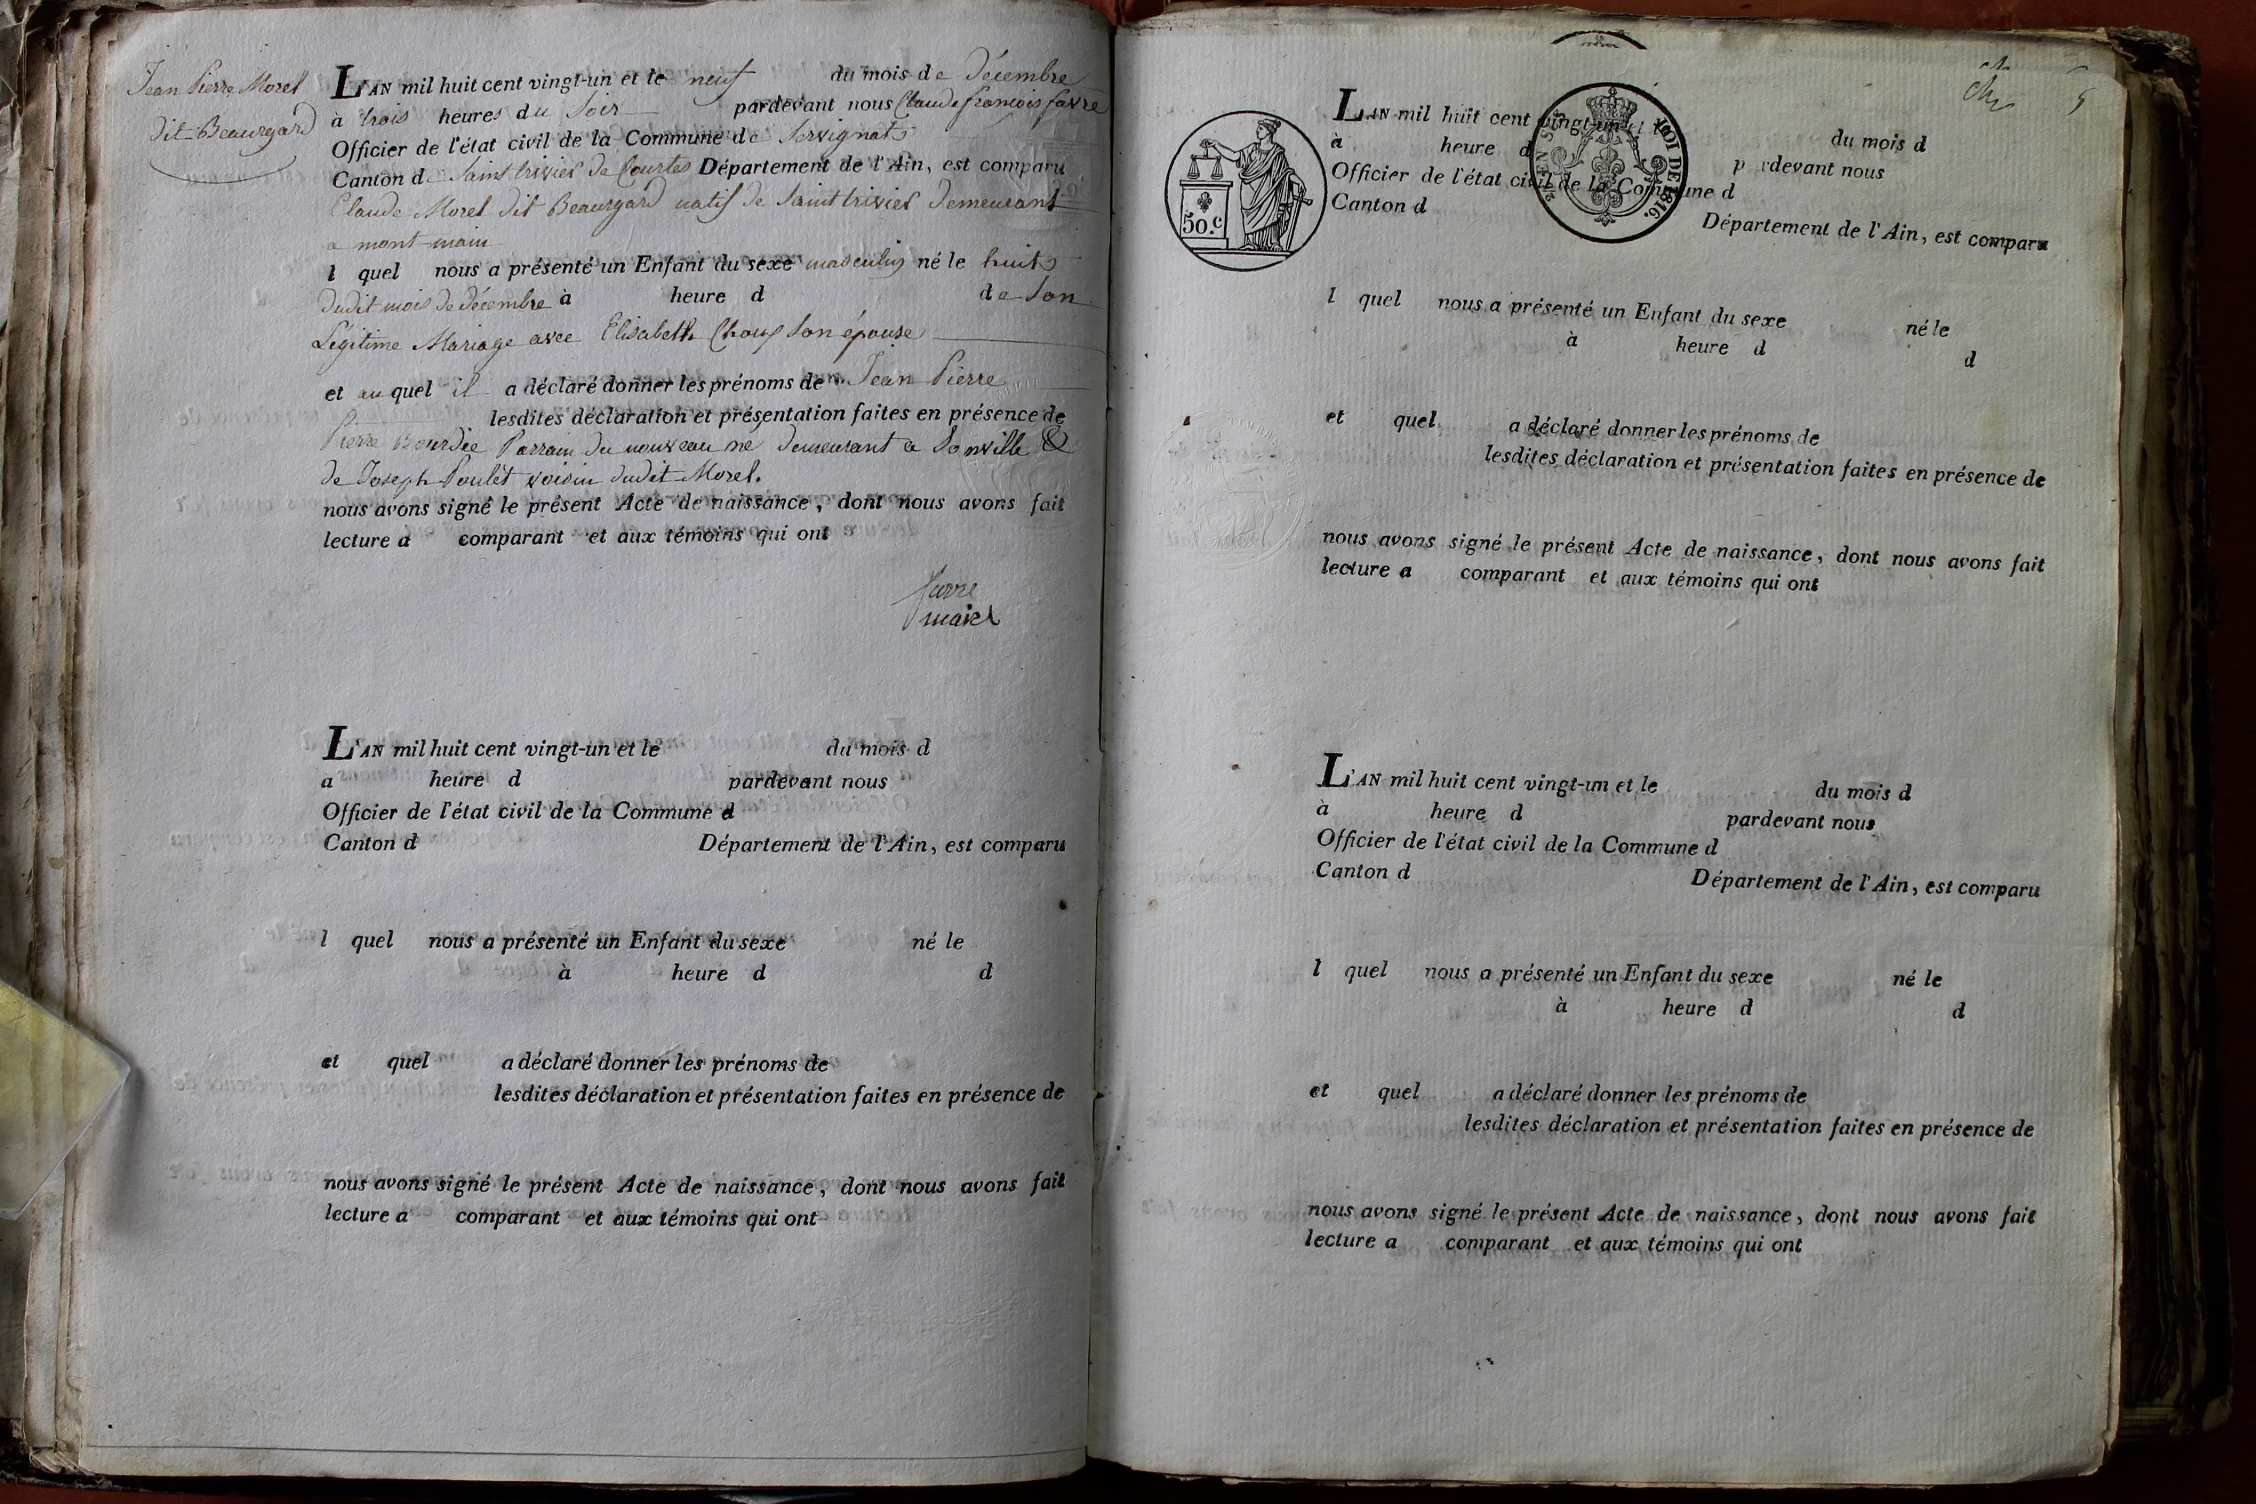 Jean Pierre Morel
dit Beauregard
L'AN mil huit cent vingt-un et le neuf du mois de Décembre
à trois heures du soir pardevant nous Claude françois favre
Officier de l'état civil de la Commune de Servignat
Canton de Saint trivier de Courtes Département de l'Ain, est comparu
Claude Morel dit Beauregard natif de Saint trivier demeurant
a mont main
l quel nous a présenté un Enfant du sexe masculin né le huit
dudit mois de décembre à heure d de son
Légitime Mariage avec Elisabeth son épouse
et au quel il a déclaré donner les prénoms de Jean Pierre
lesdites déclaration et présentation faites en présence de
Pierre Parrain du nouveau né demeurant a &
de Joseph Poulet voisin dudit Morel.
nous avons signé le présent Acte de naissance, dont nous avons fait
lecture a comparant et aux témoins qui ont
favre
L'AN mil huit cent vingt-un et le du mois d
a heure d pardevant nous
Officier de l'état civil de la Commune d
Canton d Département de l'Ain, est comparu
l quel nous a présenté un Enfant du sexe né le
à heure d d
et quel a déclaré donner les prénoms de
lesdites déclaration et présentation faites en présence de
nous avons signé le présent Acte de naissance, dont nous avons fait
lecture a comparant et aux témoins qui ont
50.c
LOI DE 1816.
L'AN mil huit cent vingt-un et l du mois d
à heure d p rdevant nous
Officier de l'état civil de la Commune d
Canton d Département de l'Ain, est comparu
l quel nous a présenté un Enfant du sexe né le
à heure d d
et quel a déclaré donner les prénoms de
lesdites déclaration et présentation faites en présence de
nous avons signé le présent Acte de naissance, dont nous avons fait
lecture a comparant et aux témoins qui ont
L'AN mil huit cent vingt-un et le du mois d
à heure d pardevant nous
Officier de l'état civil de la Commune d
Canton d Département de l'Ain, est comparu
l quel nous a présenté un Enfant du sexe né le
à heure d d
et quel a déclaré donner les prénoms de
lesdites déclaration et présentation faites en présence de
nous avons signé le présent Acte de naissance, dont nous avons fait
lecture a comparant et aux témoins qui ont